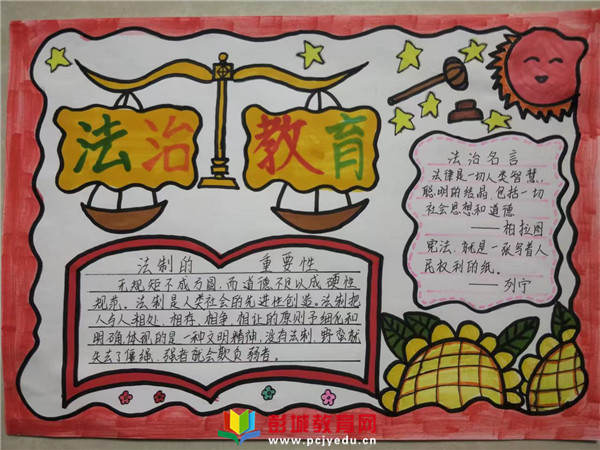 法治教育
法治名言
法律是一切人类智慧、
聪明的结晶,包括一切
社会思想和道德
——柏拉图
宪法,就是一张写着人
民权利的纸。
——列宁
法制的 重要性
无规矩不成方圆,而道德不足以成硬性
规范。法制是人类社会的先进性创造。法制把
人与人相处、相存、相争、相让的原则予细化和
明确,体现的是一种文明精神,没有法制,野蛮就
失去了僵绳,强者就会欺负弱者。
彭城教育网
www.pcjyedu.cn